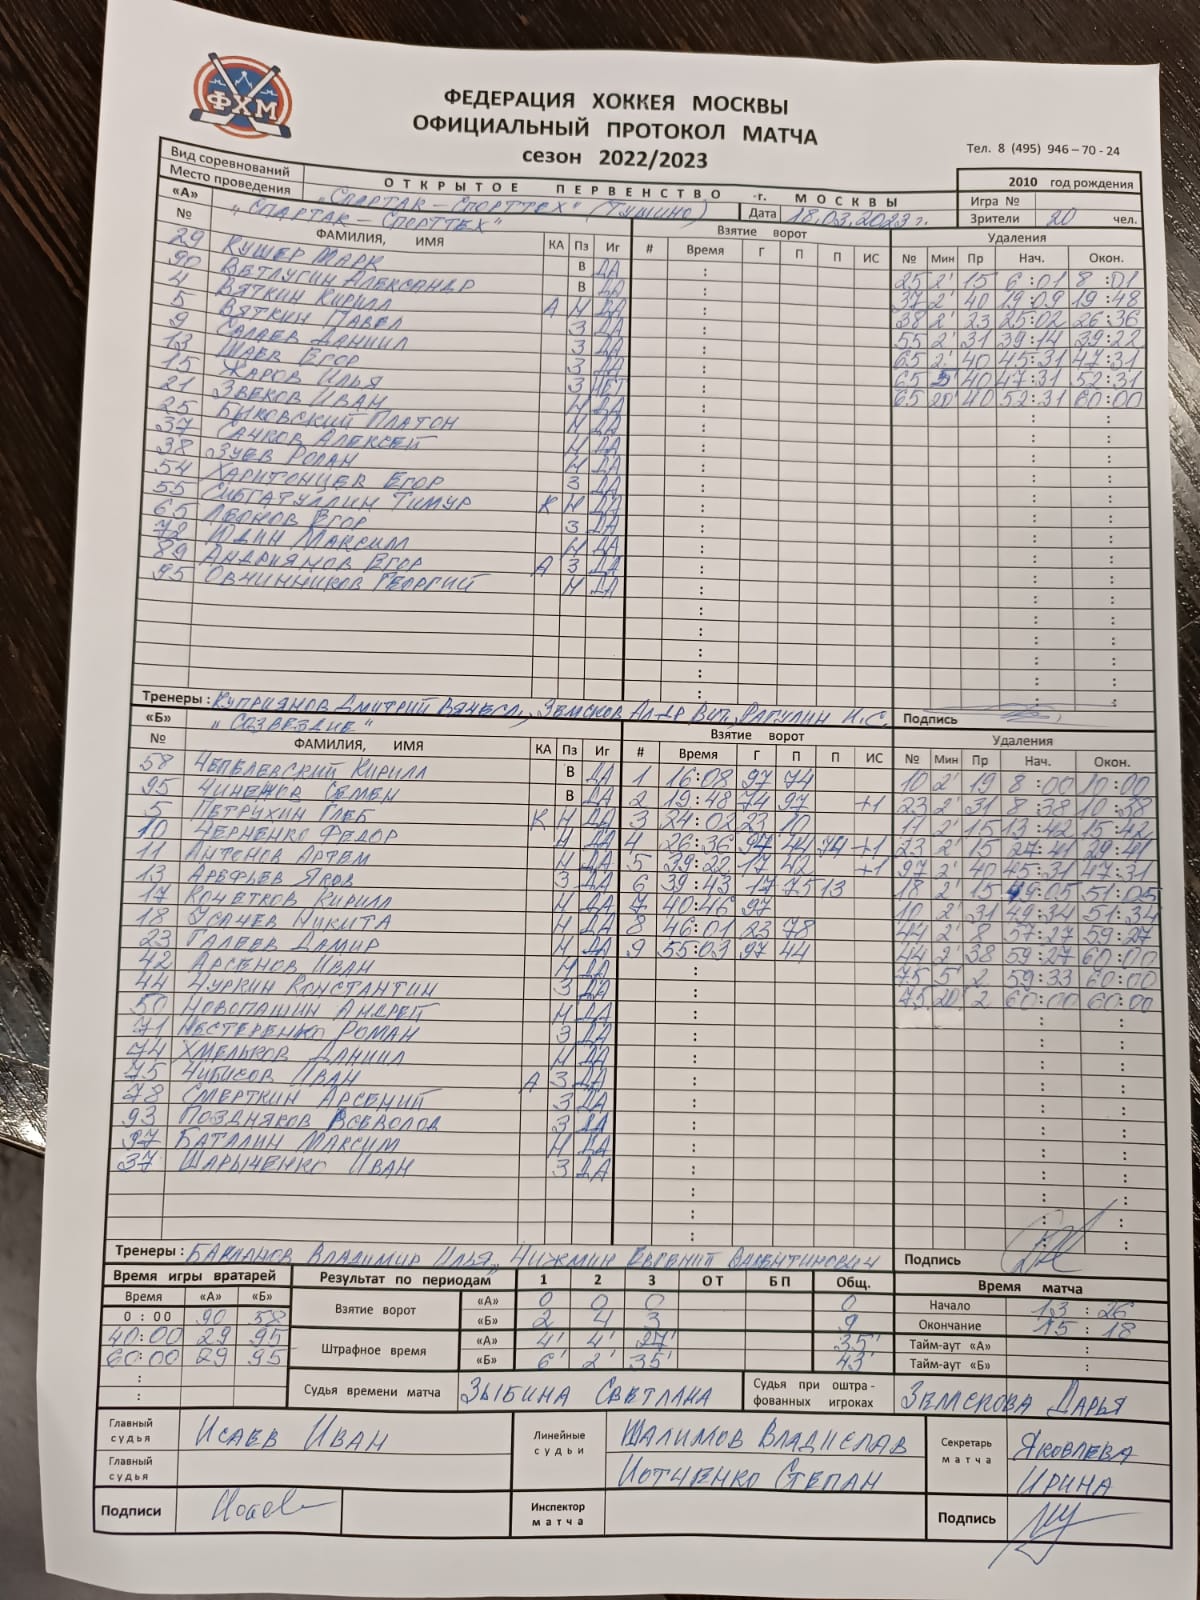 ФХМ
ФЕДЕРАЦИЯ ХОККЕЯ МОСКВЫ
ОФИЦИАЛЬНЫЙ ПРОТОКОЛ МАТЧА
сезон 2022/2023
Тел. 8 (495) 946 – 70 - 24
Вид соревнований ОТКРЫТОЕ ПЕРВЕНСТВО г. МОСКВЫ 2010 год рождения
Место проведения „Спартак – Спорттех" (Тушино) Дата 18.03.2023 г. Игра №
Зрители 20 чел.
«А» „Спартак – Спорттех" Взятие ворот Удаления
№ ФАМИЛИЯ, ИМЯ КА Пз Иг # Время Г П П ИС № Мин Пр Нач. Окон.
29 Кушер Марк В ДА 25 2' 15 6:01 8:01
90 Ветлугин Александр В ДА 37 2' 40 19:09 19:48
4 Вяткин Кирилл А Н ДА 38 2' 23 25:02 26:36
5 Вяткин Павел З ДА 55 2' 31 39:14 39:22
9 Салаев Даниил З ДА 65 2' 40 45:31 47:31
13 Шаев Егор З ДА 65 5' 40 47:31 52:31
15 Жаров Илья З НЕТ 65 20' 40 52:31 60:00
21 Звеков Иван Н ДА
25 Быковский Платон Н ДА
37 Сачков Алексей Н ДА
38 Зуев Ролан Н ДА
54 Харитонцев Егор З ДА
55 Сибгатуллин Тимур К Н ДА
65 Леонов Егор З ДА
72 Юдин Максим Н ДА
89 Андриянов Егор А З ДА
95 Овчинников Георгий Н ДА
Тренеры : Куприянов Дмитрий Вячесл., Земсков Ал-др Вит., Рагулин И.С. Подпись
«Б» „Созвездие" Взятие ворот Удаления
№ ФАМИЛИЯ, ИМЯ КА Пз Иг # Время Г П П ИС № Мин Пр Нач. Окон.
58 Чепелевский Кирилл В ДА 1 16:08 97 74 10 2' 19 8:00 10:00
95 Семен В ДА 2 19:48 74 97 +1 23 2' 31 8:38 10:38
5 Петрухин Глеб К Н ДА 3 24:02 23 10 11 2' 15 13:42 15:42
10 Черненко Федор Н ДА 4 26:36 97 44 74 +1 23 2' 15 27:41 29:41
11 Антонов Артем Н ДА 5 39:22 17 42 +1 97 2' 40 45:31 47:31
13 Арефьев Яков З ДА 6 39:43 17 75 13 18 2' 15 49:05 51:05
17 Кочетков Кирилл Н ДА 7 40:46 97 10 2' 31 49:34 51:34
18 Усачев Никита Н ДА 8 46:01 23 78 44 2' 8 57:27 59:27
23 Галеев Дамир Н ДА 9 55:03 97 44 44 2' 38 59:27 60:00
42 Арсенов Иван Н ДА 75 5' 2 59:33 60:00
44 Чуркин Константин З ДА 75 20' 2 60:00 60:00
50 Новопашин Андрей Н ДА
71 Нестеренко Роман З ДА
74 Хмельков Даниил Н ДА
75 Чибисов Иван А З ДА
78 Смерткин Арсений З ДА
93 Поздняков Всеволод З ДА
97 Баталин Максим Н ДА
37 Шарыченко Иван З ДА
Тренеры : Владимир Ильич, Чижмин Евгений Валентинович Подпись
Время игры вратарей Результат по периодам 1 2 3 ОТ БП Общ. Время матча
Время «А» «Б» Взятие ворот «А» 0 0 0 0 Начало 13:26
0 : 00 90 58 «Б» 2 4 3 9 Окончание 15:18
40:00 29 95 Штрафное время «А» 4' 4' 27' 35' Тайм-аут «А» :
60:00 29 95 «Б» 6' 2' 35' 43' Тайм-аут «Б» :
Судья времени матча Зыбина Светлана Судья при оштрафованных игроках Земскова Дарья
Главный судья Исаев Иван Линейные судьи Шалимов Владислав Секретарь матча Яковлева
Главный судья Иотченко Степан Ирина
Подписи Инспектор матча Подпись